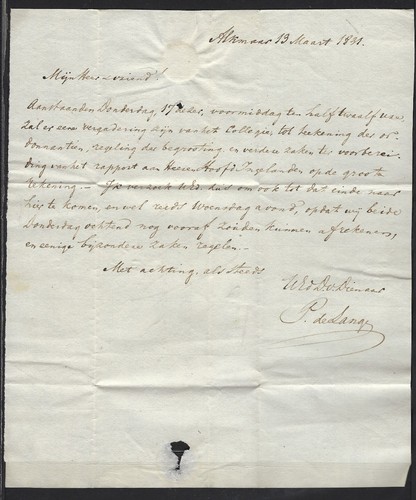 Alkmaar 13 Maart 1841.
Mijn Heer & vriend!
Aanstaanden Donderdag, 17 dezer, voormiddag ten half twaalf ure,
zal er eene vergadering zijn van het Collegie, tot tekening des or-
donnantien, regeling des begrooting en verdere zaken ter voorberei-
ding van het rapport aan Heeren Hoofd Ingelanden op de groote
rekening. — Ik verzoek UEd. dus om ook tot dat einde naar
hier te komen, en wel reeds Woensdag avond, opdat wij beide
Donderdag ochtend nog vooraf zouden kunnen afrekenen,
en eenige bijzondere zaken regelen. —
Met achting, als steeds
UEd. D. v. Dienaar
P. de Lange